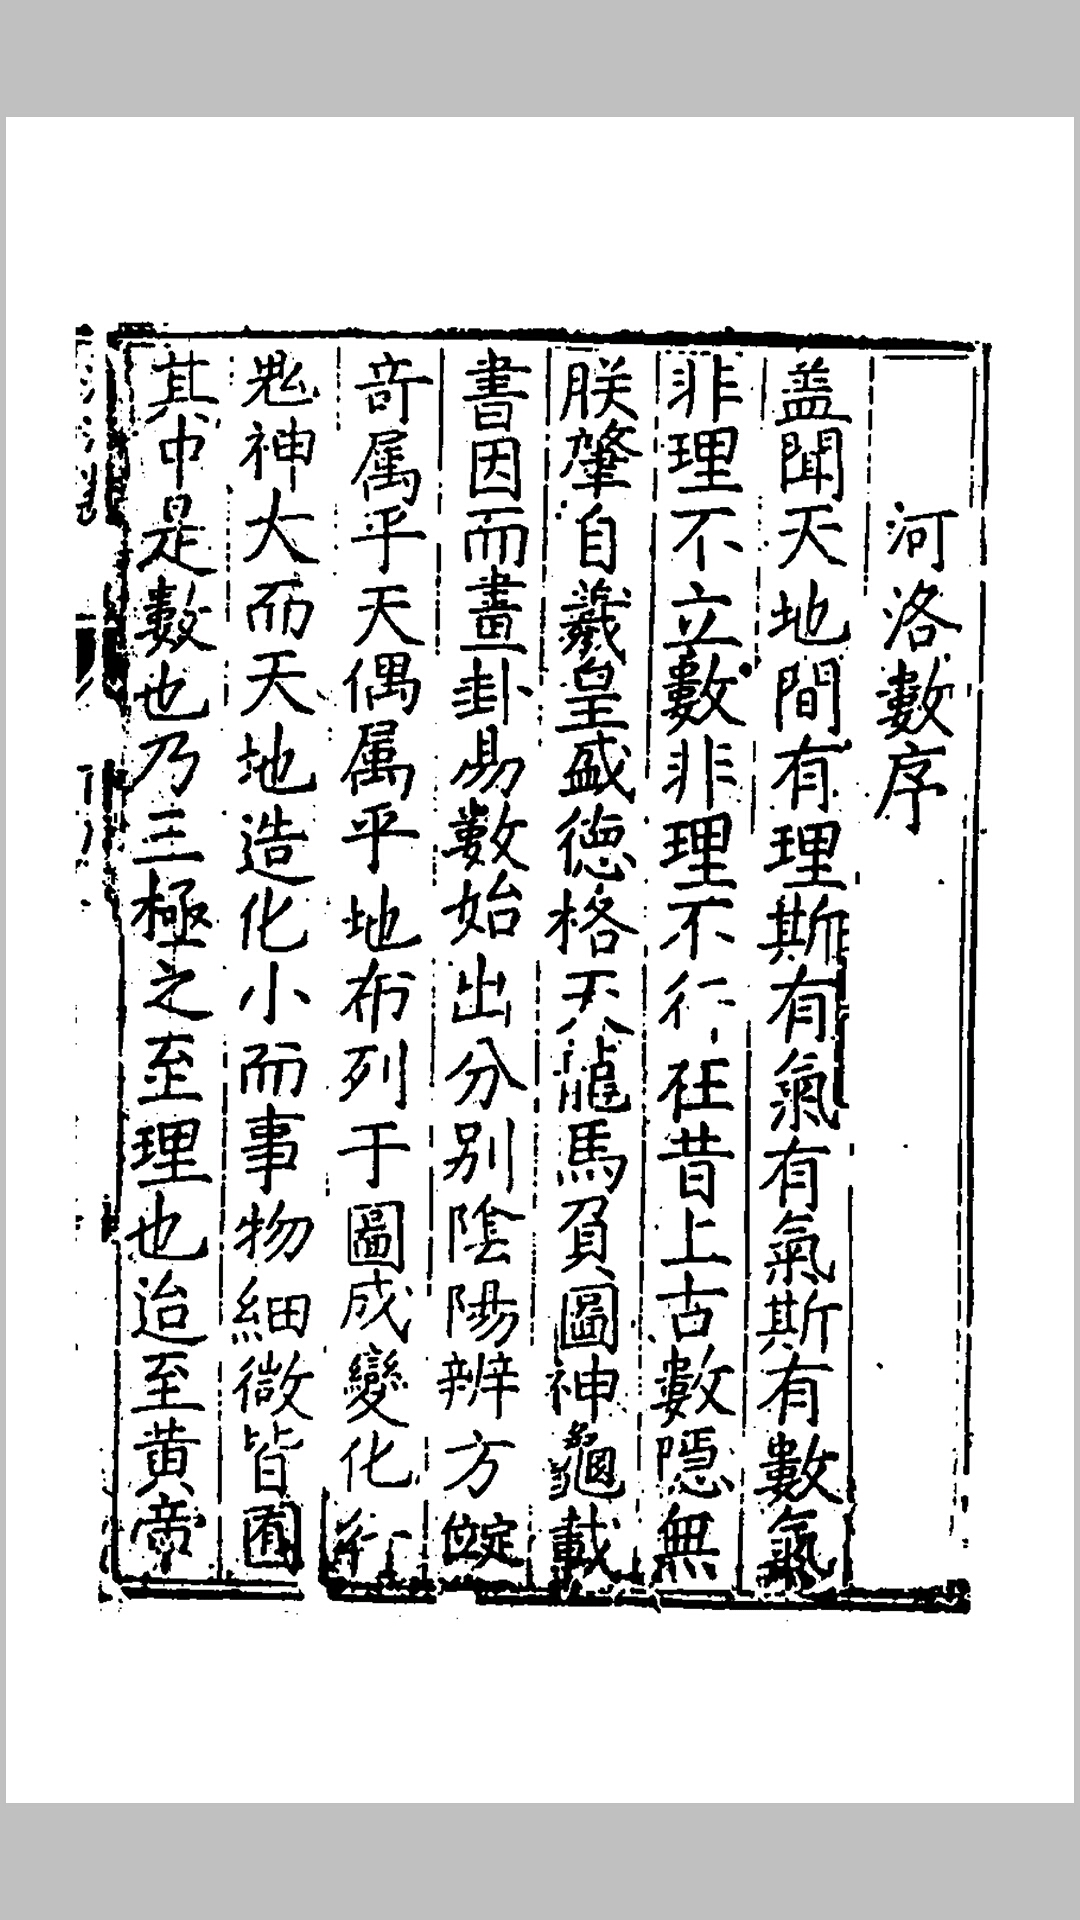 河洛數序
盖聞天地間有理斯有氣有氣斯有數氣
非理不立數非理不行在昔上古數隱無
朕肇自羲皇盛德格天龍馬負圖神龜載
書因而畫卦易數始出分别陰陽辨方定位
竒属乎天偶属乎地布列于圖成變化行
鬼神大而天地造化小而事物細微皆囿
其中是數也乃三極之至理也迨至黄帝